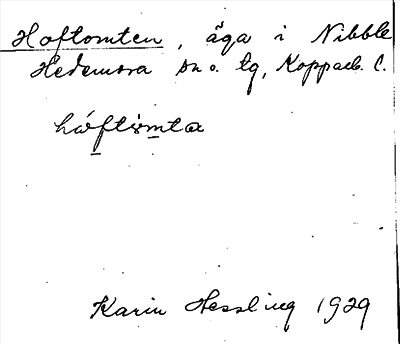 Hoftomten, äga i Nibble
Hedemora sn o. tg, Kopparb. l.
håftòmta
Karin Hessling 1929